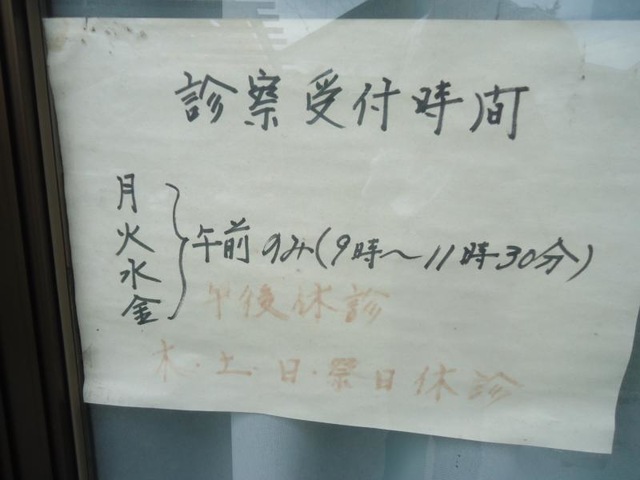 診察受付時間
月火水金}午前のみ(9時～11時30分)
午後休診
木・土・日・祭日休診